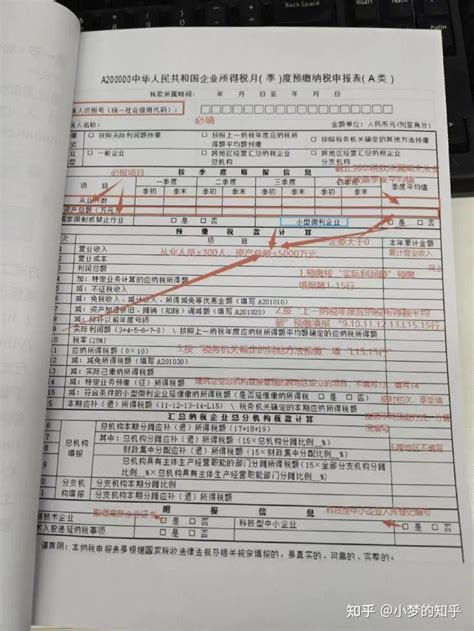 A200000中华人民共和国企业所得税月(季)度预缴纳税申报表(A类)
税款所属期间： 年 月 日至 年 月 日
人识别号(统一社会信用代码)：
必填
人名称： 金额单位：人民币元(列至角分)
□ 按照实际利润额预缴 □ 按照上一纳税年度应纳税所得额平均额预缴 □ 按照税务机关确定的其他方法预缴
□ 一般企业 □ 跨地区经营汇总纳税企业总机构 □ 跨地区经营汇总纳税企业分支机构
必报项目
按 季 度 填 报 信 息
项 目 一季度 二季度 三季度 四季度 季度平均值
季初 季末 季初 季末 季初 季末 季初 季末
从业人数
资产总额(万元)
国家限制或禁止行业 □ 是 □ 否 小型微利企业 □ 是 □ 否
预 缴 税 款 计 算
项 目 本年累计金额
一定要大于0
营业收入
营业成本
从业人员≤300人，资产总额≤5000万元
利润总额
1.预缴按“实际利润额”预缴
填报第1-15行
加：特定业务计算的应纳税所得额
减：不征税收入
减：免税收入、减计收入、所得减免等优惠金额(填写A201010)
减：资产加速折旧、摊销(扣除)调减额(填写A201020)
减：弥补以前年度亏损
2.按“上一纳税年度应纳税所得额平均额”预缴填报
9,10,11,12,13,L15,15行
实际利润额(3+4-5-6-7-8) \ 按照上一纳税年度应纳税所得额平均额确定的应纳税所得额
税率(25%)
应纳所得税额(9×10)
3.按“税务机关确定的其他方法预缴”填“L15,15行”
减：减免所得税额(填写A201030)
减：实际已缴纳所得税额
减：特定业务预缴(征)所得税额
减：符合条件的小型微利企业延缓缴纳所得税额(是否延缓缴纳所得税 □ 是 □ 否)
本期应补(退)所得税额(11-12-13-14-L15) \ 税务机关确定的本期应纳所得税额
汇总纳税企业总分机构税款计算
总机构填报
总机构本期分摊应补(退)所得税额(17+18+19)
其中：总机构分摊应补(退)所得税额(15×总机构分摊比例__%)
财政集中分配应补(退)所得税额(15×财政集中分配比例__%)
总机构具有主体生产经营职能的部门分摊所得税额(15×全部分支机构分摊比例__%×总机构具有主体生产经营职能部门分摊比例__%)
分支机构填报
分支机构本期分摊比例
分支机构本期分摊应补(退)所得税额
附 报 信 息
技术企业 □ 是 □ 否 科技型中小企业 □ 是 □ 否
术入股递延纳税事项 □ 是 □ 否
谨声明：本纳税申报表是根据国家税收法律法规及相关规定填报的，是真实的、可靠的、完整的。
知乎 @小梦的知乎